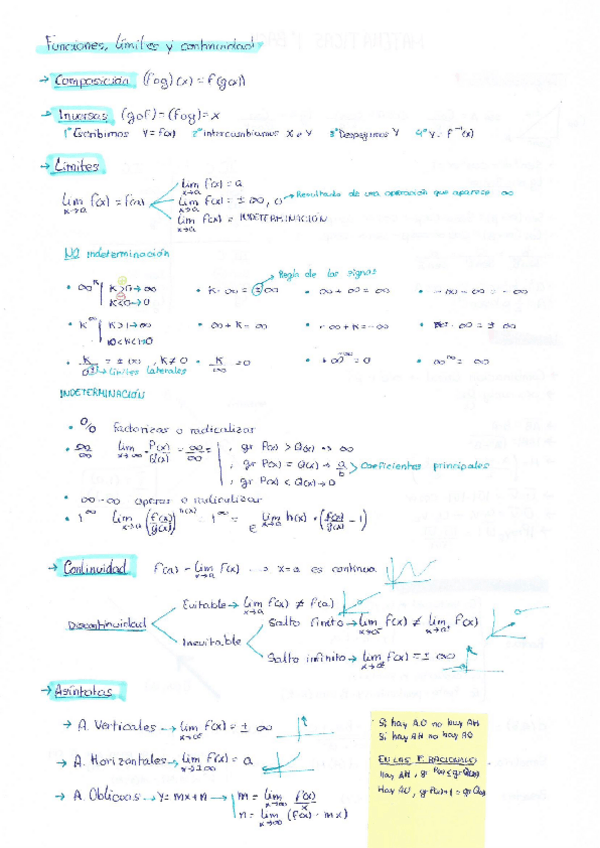 Funciones, límites y continuidad
→ Composición (fog)(x) = f(g(x))
→ Inversas (gof) = (fog) = x
1º Escribimos y = f(x) 2º intercambiamos x e y 3º Despejamos y 4º y = f⁻¹(x)
→ Límites
lim x→a f(x) = f(a)
lim x→a f(x) = a
lim x→a f(x) = ± ∞, 0 → Resultado de una operación que aparece ∞
lim x→a f(x) = INDETERMINACIÓN
NO indeterminación
Regla de los signos
• ∞^K | K>0 → ∞ • K · ∞ = ± ∞ • ∞ + ∞ = ∞ • - ∞ - ∞ = - ∞
K<0 → 0
• K^∞ | K>1 → ∞ • ∞ + K = ∞ • - ∞ + K = - ∞ • ∞ = ± ∞
0<K<1 → 0
• K/0 = ± ∞, K ≠ 0 • K/∞ = 0 • +∞^-∞ = 0 • ∞^∞ = ∞
→ límites laterales
INDETERMINACIÓN
• 0/0 factorizar o radicalizar
• ∞/∞ lim x→∞ P(x)/Q(x) = ∞/∞ = | , gr P(x) > Q(x) → ∞
, gr P(x) = Q(x) → a/b > Coeficientes principales
, gr P(x) < Q(x) → 0
• ∞ - ∞ operar o radicalizar
• 1^∞ lim x→a (f(x)/g(x))^h(x) = 1^∞ = e^ lim x→a h(x) · (f(x)/g(x) - 1)
→ Continuidad f(a) = lim x→a f(x) → x = a es continua
Discontinuidad
Evitable → lim x→a f(x) ≠ f(a)
Inevitable
Salto finito → lim x→a⁻ f(x) ≠ lim x→a⁺ f(x)
Salto infinito → lim x→a f(x) = ± ∞
→ Asíntotas
→ A. Verticales → lim x→a f(x) = ± ∞
→ A. Horizontales → lim x→±∞ f(x) = a
→ A. Oblicuas → y = mx + n → | m = lim x→∞ f(x)/x
n = lim x→∞ (f(x) - mx)
Si hay AO no hay AH
Si hay AH no hay AO
EN LAS F. RACIONALES
Hay AH, gr P(x) ≤ gr Q(x)
Hay AO, gr P(x) = 1 + gr Q(x)